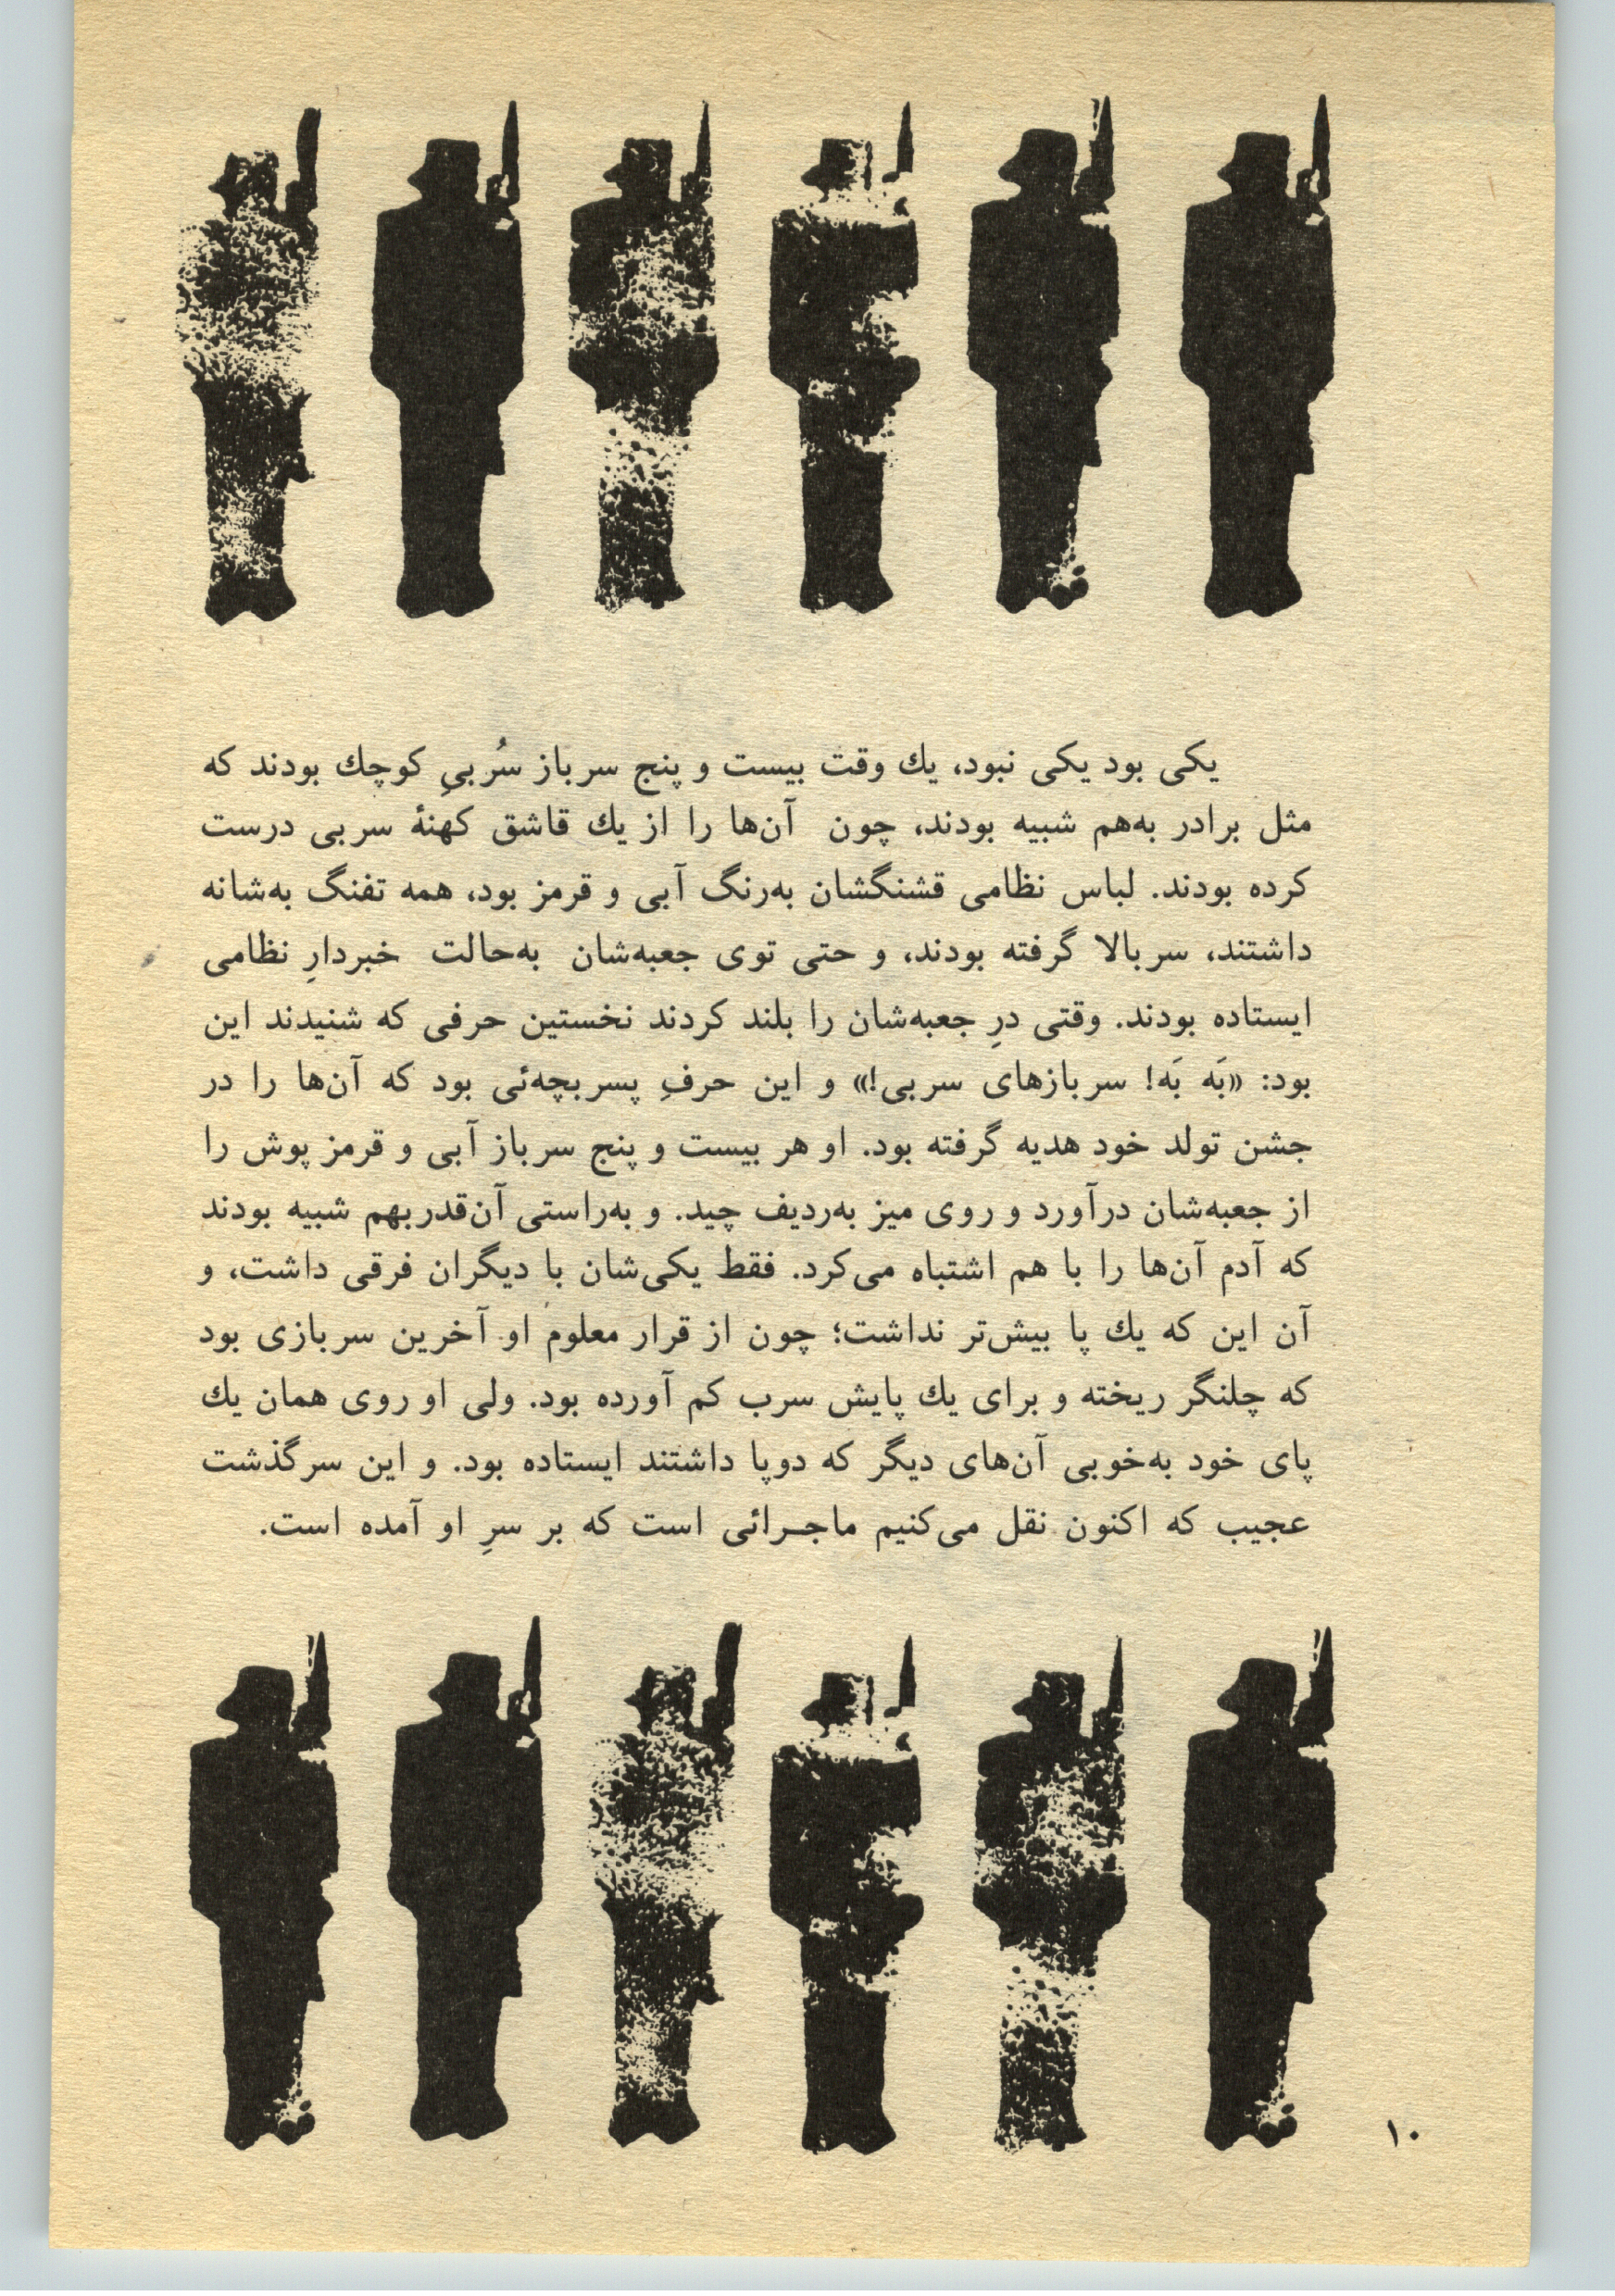 یکی بود یکی نبود، یك وقت بیست و پنج سرباز سُربیِ کوچك بودند که
مثل برادر به‌هم شبیه بودند، چون آن‌ها را از یك قاشق کهنهٔ سربی درست
کرده بودند. لباس نظامی قشنگشان به‌رنگ آبی و قرمز بود، همه تفنگ به‌شانه
داشتند، سربالا گرفته بودند، و حتی توی جعبه‌شان به‌حالت خبردارِ نظامی
ایستاده بودند. وقتی درِ جعبه‌شان را بلند کردند نخستین حرفی که شنیدند این
بود: «بَه بَه! سربازهای سربی!» و این حرفِ پسربچه‌ئی بود که آن‌ها را در
جشن تولد خود هدیه گرفته بود. او هر بیست و پنج سرباز آبی و قرمز پوش را
از جعبه‌شان درآورد و روی میز به‌ردیف چید. و به‌راستی آن‌قدر بهم شبیه بودند
که آدم آن‌ها را با هم اشتباه می‌کرد. فقط یکی‌شان با دیگران فرقی داشت، و
آن این که یك پا بیش‌تر نداشت؛ چون از قرار معلوم او آخرین سربازی بود
که چلنگر ریخته و برای یك پایش سرب کم آورده بود. ولی او روی همان یك
پای خود به‌خوبی آن‌های دیگر که دوپا داشتند ایستاده بود. و این سرگذشت
عجیب که اکنون نقل می‌کنیم ماجـرائی است که بر سرِ او آمده است.
۱۰